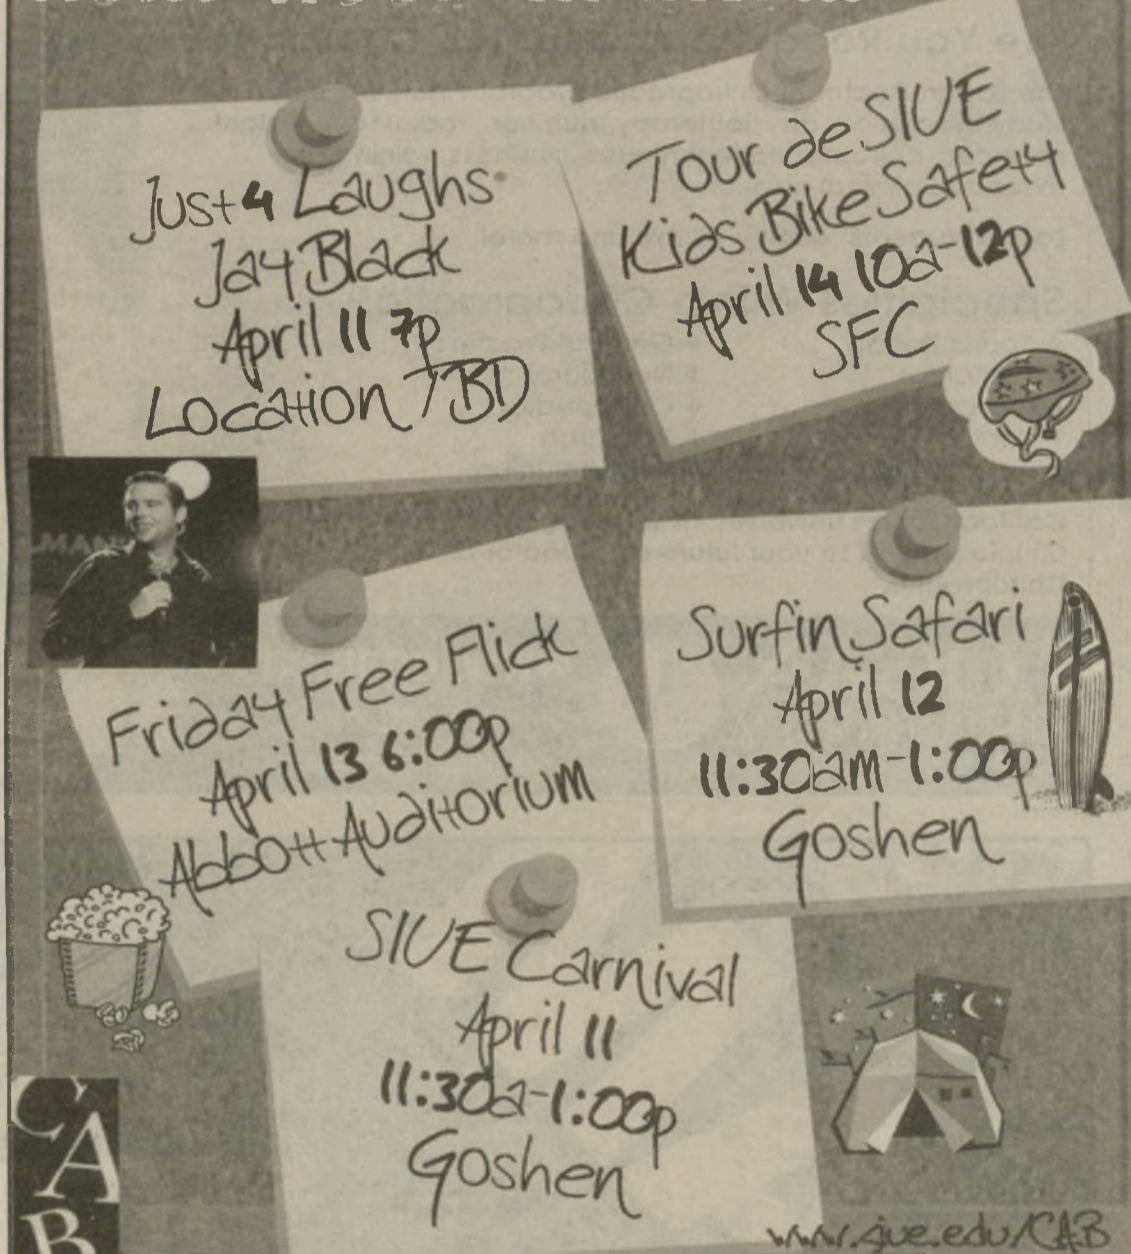 Just 4 Laughs
Jay Black
April 11 7p
Location TBD
Tour de SIUE
Kids Bike Safety
April 14 10a-12p
SFC
Friday Free Flick
April 13 6:00p
Abbott Auditorium
Surfin Safari
April 12
11:30am-1:00p
Goshen
SIUE Carnival
April 11
11:30a-1:00p
Goshen
CAB
www.siue.edu/CAB